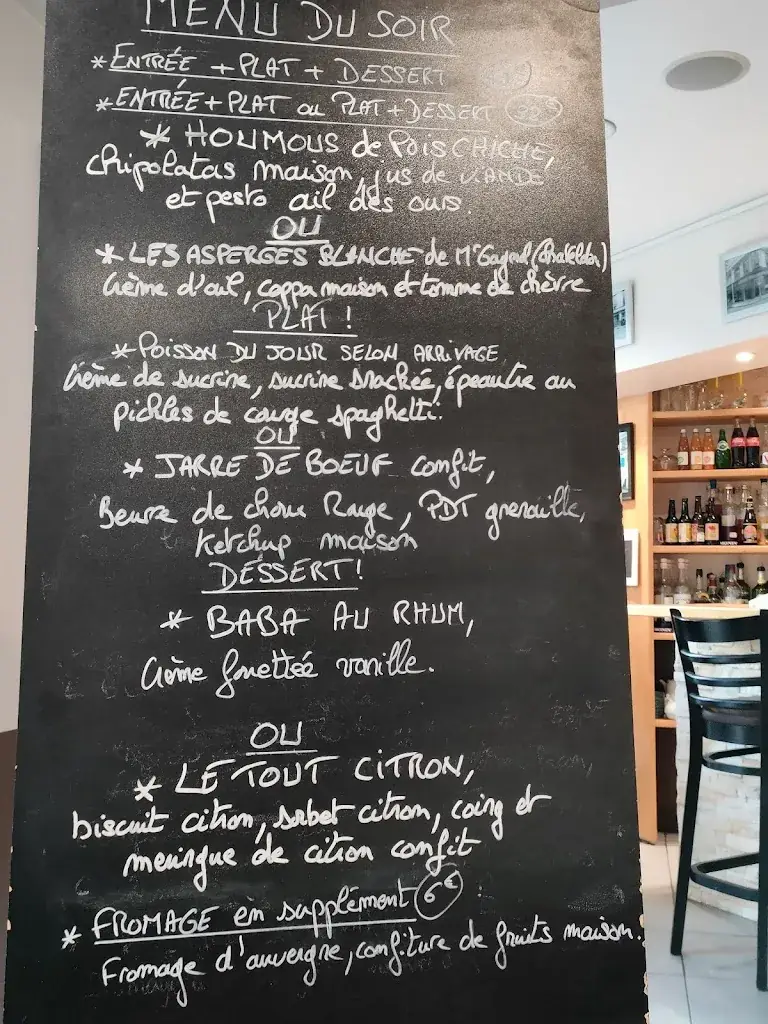 MENU DU SOIR
* ENTRÉE + PLAT + DESSERT
* ENTRÉE + PLAT ou PLAT + DESSERT
* HOUMOUS de POIS CHICHE,
chipolatas maison, jus de VIANDE
et pesto ail des ours.
OU
* LES ASPERGES BLANCHE de Mr
Crème d'ail, coppa maison et tomme de chèvre
PLAT !
* POISSON DU JOUR SELON ARRIVAGE
Crème de sucrine, sucrine snackée, épeautre au
pickles de courge spaghetti.
OU
* JARRE DE BOEUF confit,
Beurre de choux Rouge, PDT grenaille,
Ketchup maison
DESSERT !
* BABA AU RHUM,
Crème fouettée vanille.
OU
* LE TOUT CITRON,
biscuit citron, sorbet citron, coing et
meringue de citron confit
* FROMAGE en supplément 6€ :
Fromage d'auvergne, confiture de fruits maison.